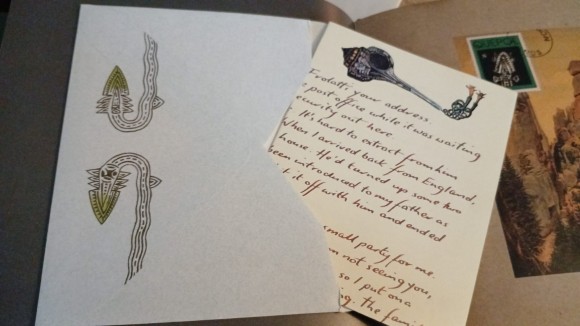 Frolatti, your address.
post office while it was waiting
ecurity out here.
It's hard to extract from him
When I arrived back from England,
house. He'd turned up some two
been introduced to my father as
t it off with him and ended
small party for me.
m not seeing you,
so I put on a
ng. The fami